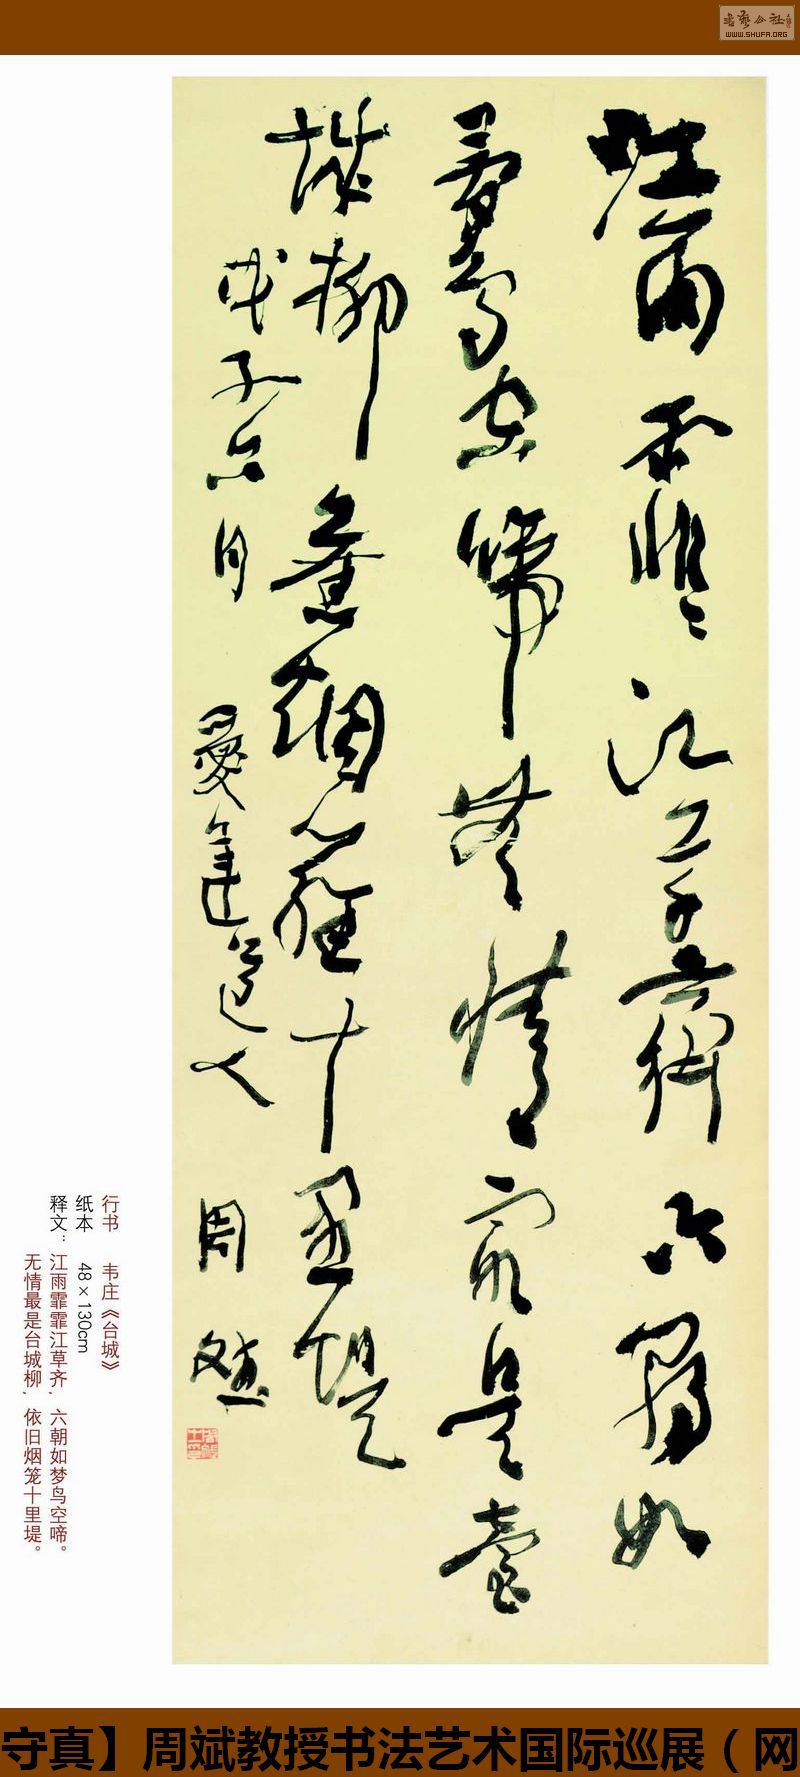 WWW.SHUFA.ORG
江雨霏霏江草齊六朝如
夢鳥空啼無情最是臺
城柳舊烟籠十里堤
戊子六月 愛蓮道人 周斌
行书 韦庄《台城》
纸本 48×130cm
释文：江雨霏霏江草齐，六朝如梦鸟空啼。
无情最是台城柳，依旧烟笼十里堤。
守真】周斌教授书法艺术国际巡展（网